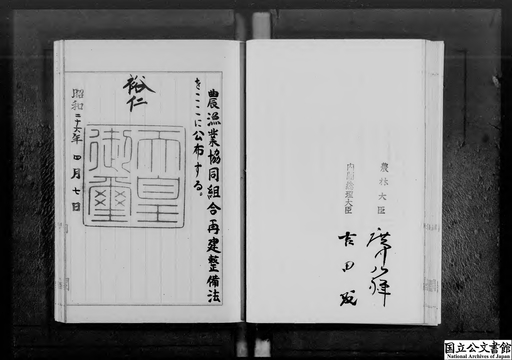 農漁業協同組合再建整備法
をここに公布する。
裕仁
天皇
御璽
昭和二十六年四月七日
農林大臣 廣川弘禅
内閣総理大臣 吉田茂
国立公文書館
National Archives of Japan